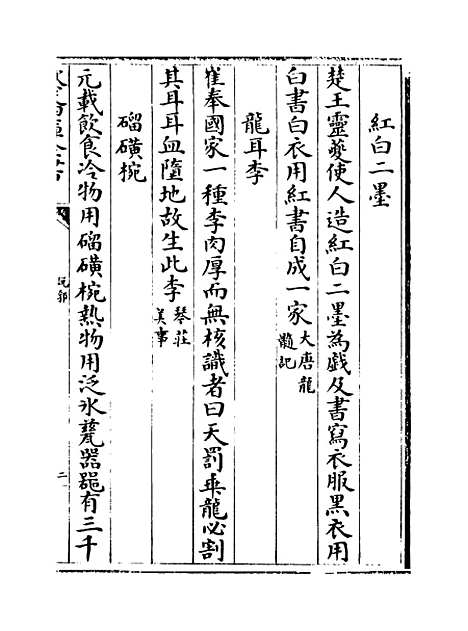 紅白二墨
楚王靈夔使人造紅白二墨為戲及書寫衣服黑衣用
白書白衣用紅書自成一家大唐龍
髓記
龍耳李
崔奉國家一種李肉厚而無核識者曰天罰乖龍必割
其耳耳血墮地故生此李琴莊
美事
磂磺椀
元載飲食冷物用磂磺椀熱物用泛氷甆器器有三千
說郛
二